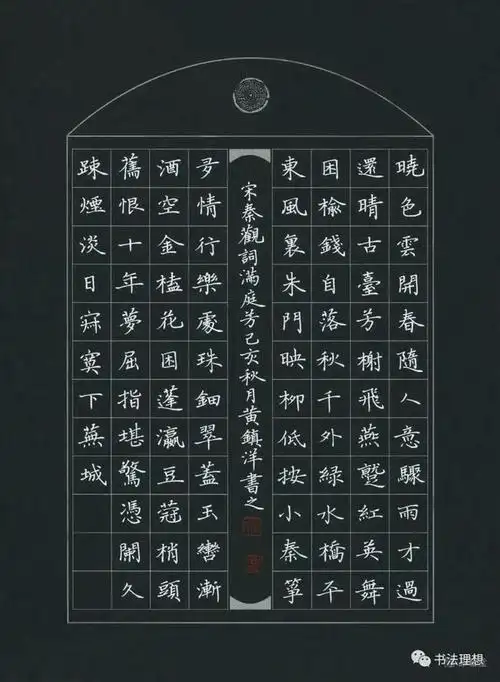 曉色雲開春隨人意驟雨才過
還晴古臺芳榭飛燕蹵紅英舞
困榆錢自落秋千外緑水橋平
東風裏朱門映柳低按小秦箏
宋秦觀詞滿庭芳己亥秋月黄鎮洋書之
多情行樂處珠鈿翠蓋玉轡漸
酒空金榼花困蓬瀛豆蔻梢頭
舊恨十年夢屈指堪驚憑闌久
疎煙淡日寂寞下蕪城
书法理想